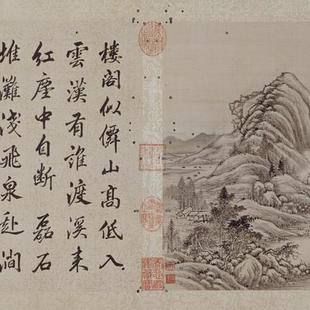 樓閣似僊山高低入
雲漢有誰渡溪来
紅塵中自斷 磊石
堆灘淺飛泉赴澗